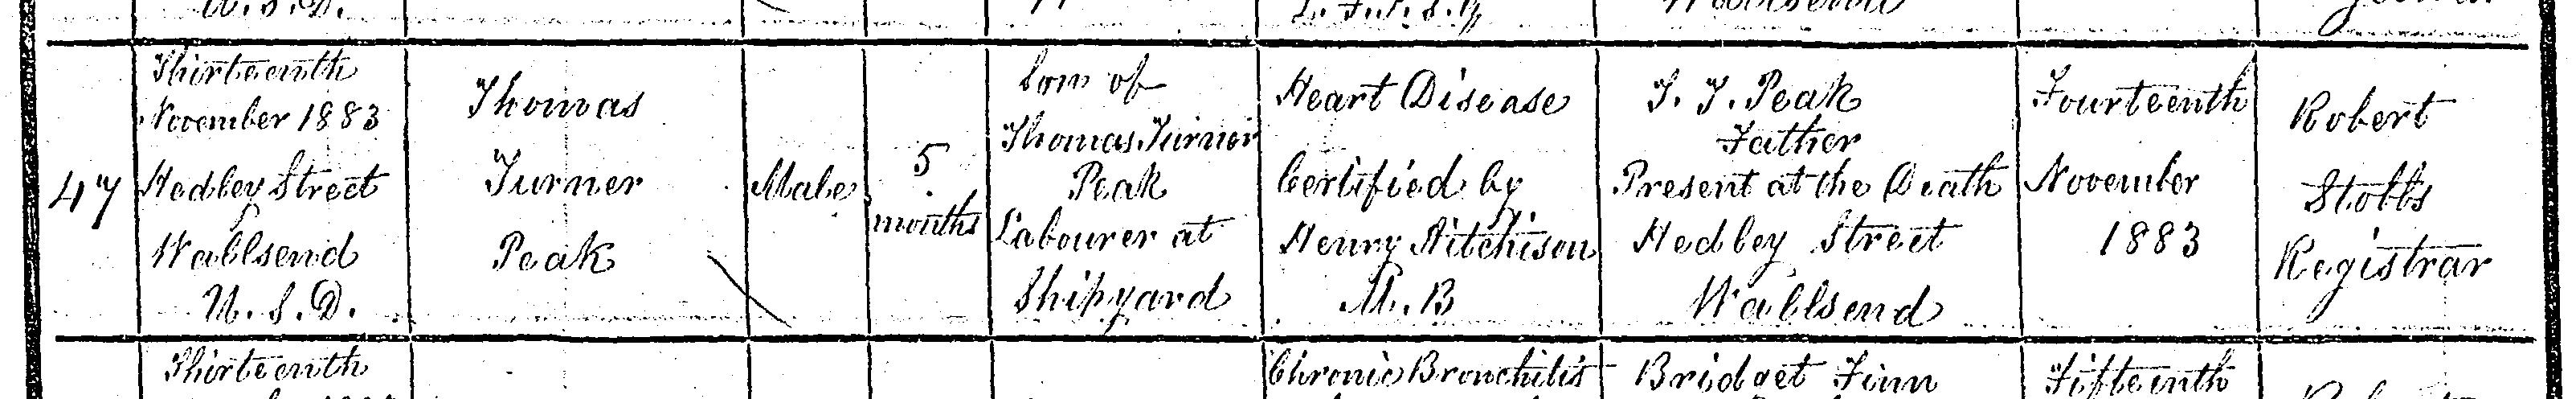 U.S.D.
Thirteenth
November 1883
Hedley Street
Wallsend
U.S.D.
47
Thomas
Turner
Peak
Male
5
months
Son of
Thomas Turner
Peak
Labourer at
Shipyard
Heart Disease
Certified by
Henry Aitchison
M.B
T. T. Peak
Father
Present at the Death
Hedley Street
Wallsend
Fourteenth
November
1883
Robert
Stobbs
Registrar
Thirteenth
Chronic Bronchitis
Bridget Finn
Fifteenth